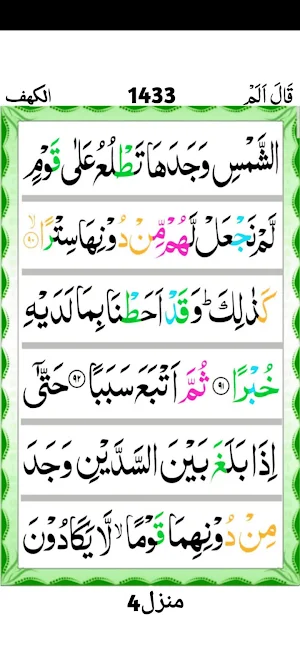 الكهف 1433 قَالَ اَلَمْ
الشَّمْسِ وَجَدَهَا تَطْلُعُ عَلٰى قَوْمٍ
لَّمْ نَجْعَلْ لَّهُمْ مِّنْ دُوْنِهَا سِتْرًا ۙ۹۰
كَذٰلِكَ ؕ وَقَدْ اَحَطْنَا بِمَا لَدَيْهِ
خُبْرًا ۹۱ ثُمَّ اَتْبَعَ سَبَبًا ۹۲ حَتّٰۤى
اِذَا بَلَغَ بَيْنَ السَّدَّيْنِ وَجَدَ
مِنْ دُوْنِهِمَا قَوْمًا ۙ لَّا يَكَادُوْنَ
منزل4